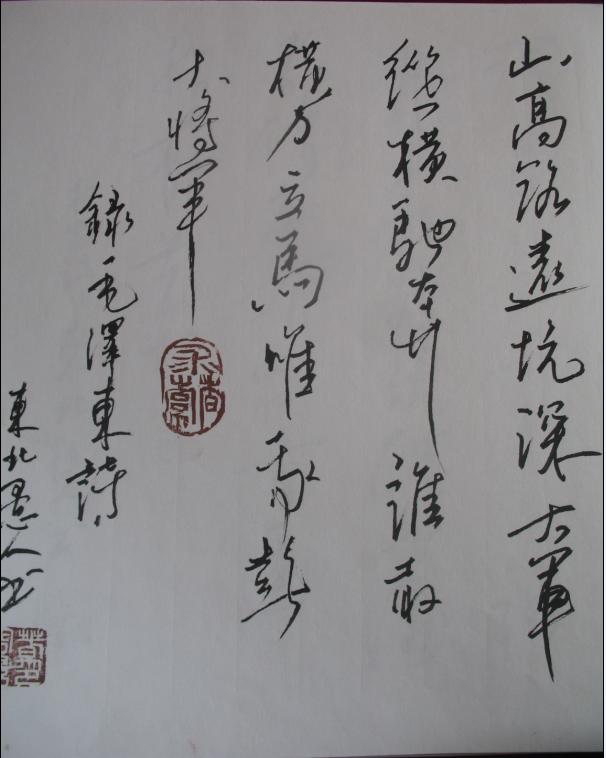 山高路遠坑深大軍
縱橫馳奔誰敢
橫刀立馬唯我彭
大將軍
錄毛澤東詩
東北愚人书